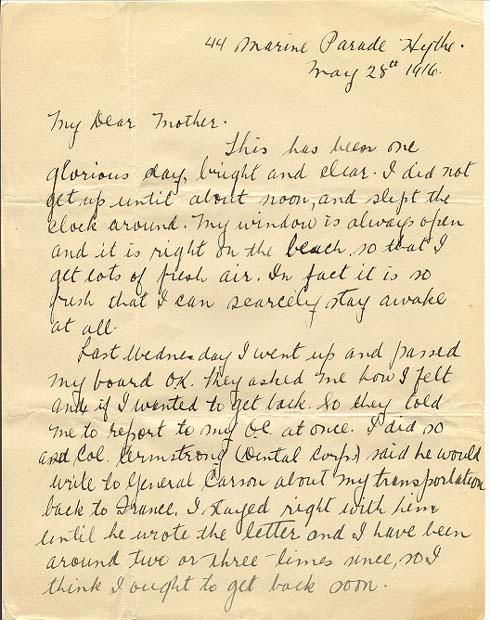 44 Marine Parade Hythe.
May 28th 1916.
My Dear Mother.
This has been one
glorious day, bright and clear. I did not
get up until about noon, and slept the
clock around. My window is always open
and it is right on the beach, so that I
get lots of fresh air. In fact it is so
fresh that I can scarcely stay awake
at all.
Last Wednesday I went up and passed
my board OK. They asked me how I felt
and if I wanted to get back. So they told
me to report to my O.C. at once. I did so
and Col. Armstrong (Dental Corps) said he would
write to General Carson about my transportation
back to France. I stayed right with him
until he wrote the letter and I have been
around two or three times since, so I
think I ought to get back soon.